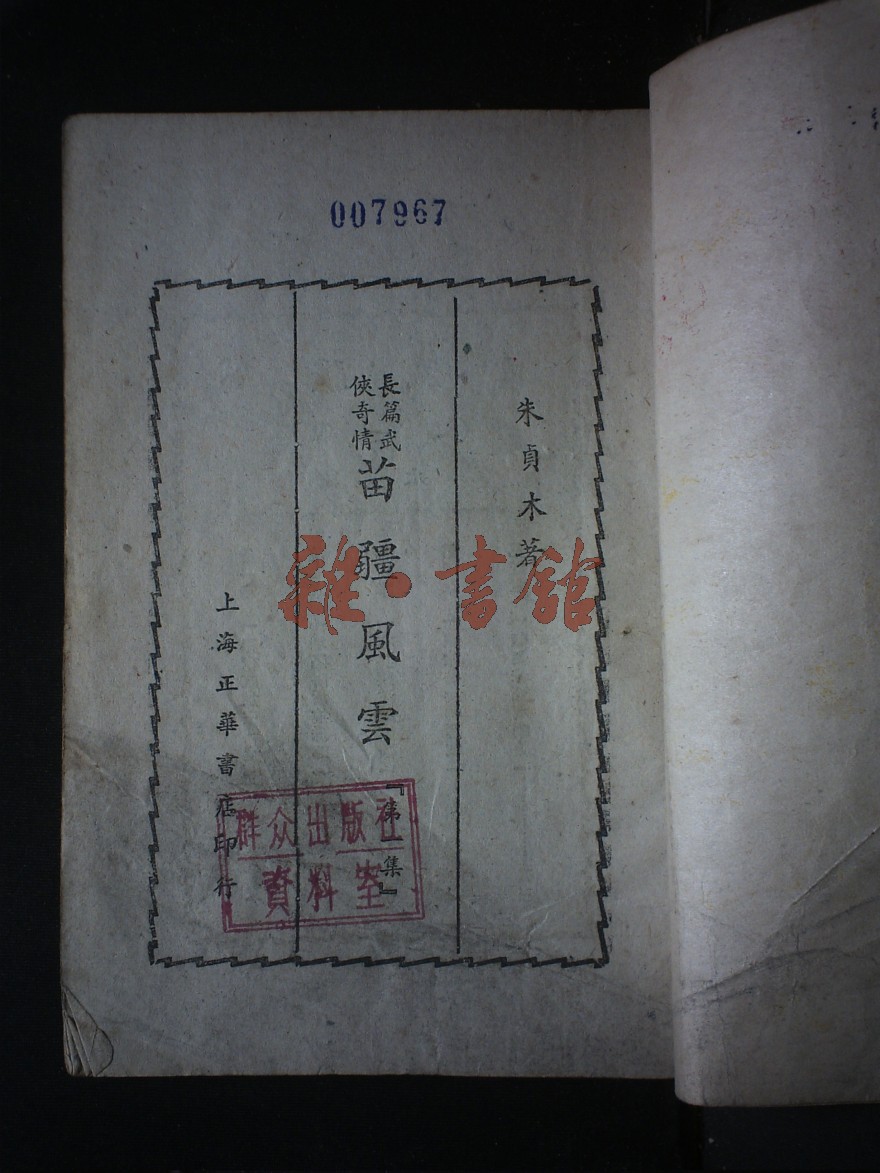 007967
朱貞木著
長篇武
俠奇情
苗疆風雲
『第一集』
上海正華書店印行
群众出版社
資料室
雜·書館